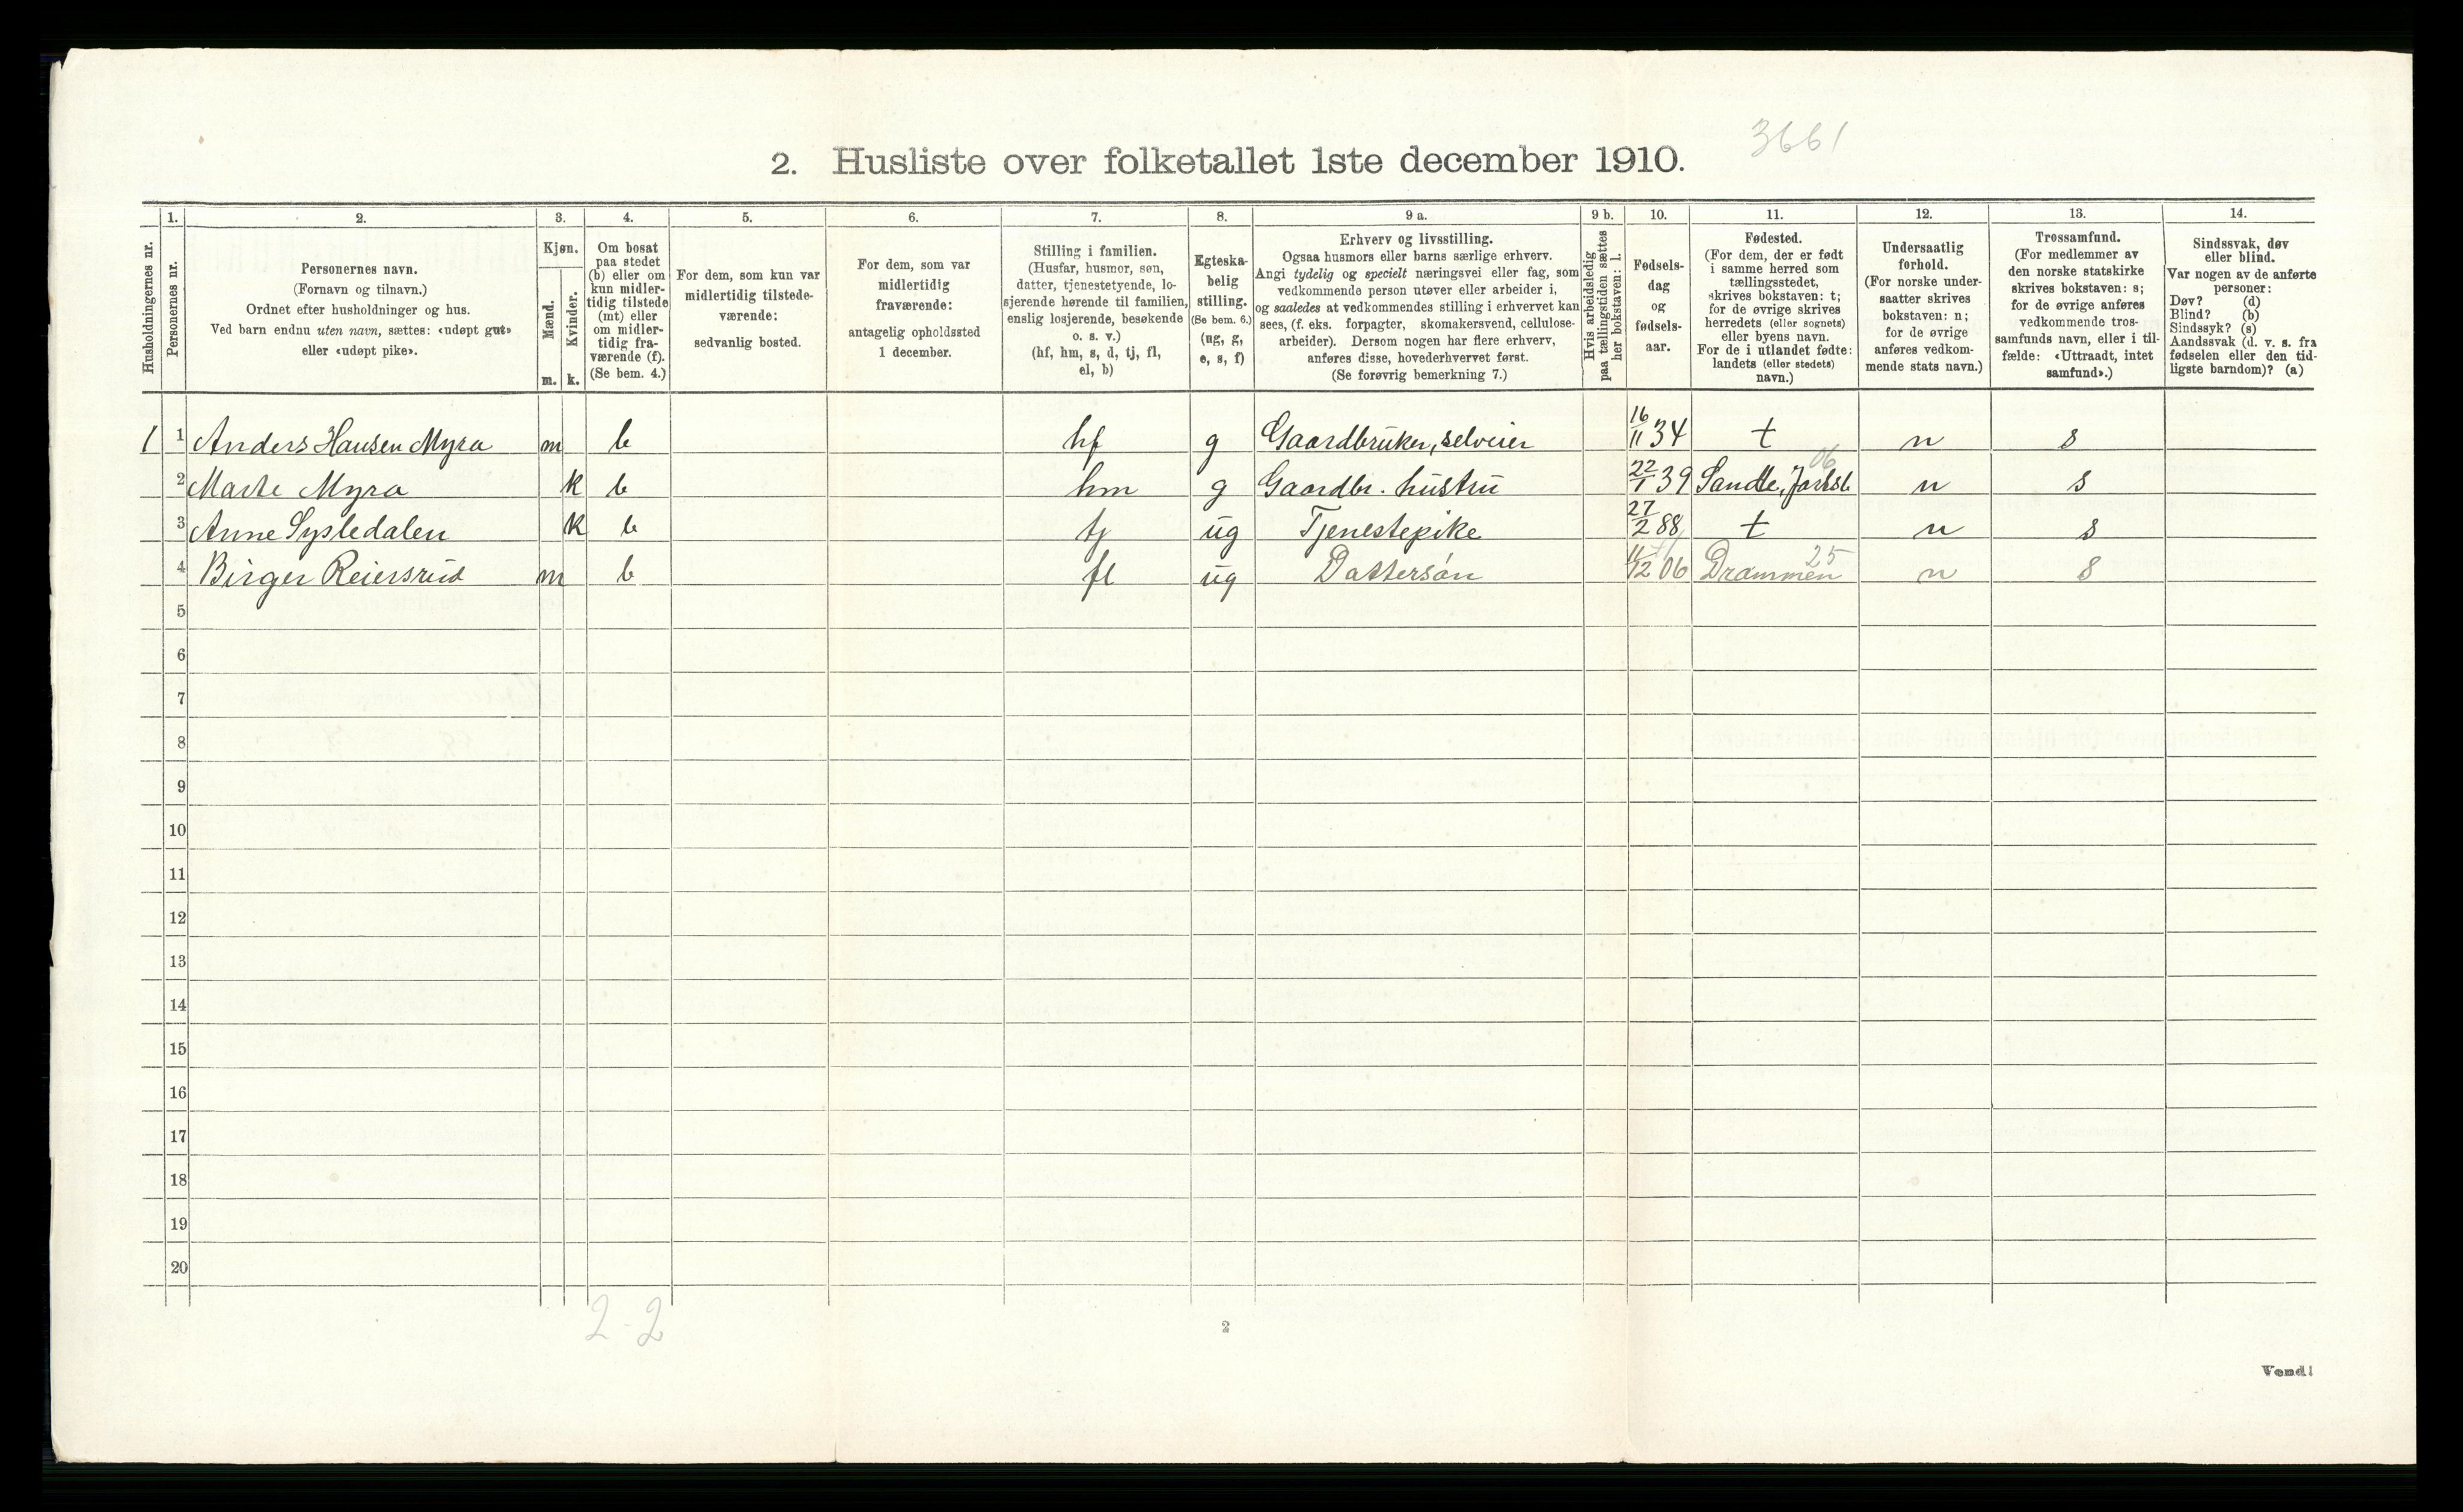 3661
2. Husliste over folketallet 1ste december 1910.
Husholdningernes nr.
1.
Personernes nr.
2.
Personernes navn.
(Fornavn og tilnavn.)
Ordnet efter husholdninger og hus.
Ved barn endnu uten navn, sættes: «udøpt gut»
eller «udøpt pike».
3.
Kjøn.
Mænd.
Kvinder.
m. k.
4.
Om bosat
paa stedet
(b) eller om
kun midler-
tidig tilstede
(mt) eller
om midler-
tidig fra-
værende (f).
(Se bem. 4.)
5.
For dem, som kun var
midlertidig tilstede-
værende:
sedvanlig bosted.
6.
For dem, som var
midlertidig
fraværende:
antagelig opholdssted
1 december.
7.
Stilling i familien.
(Husfar, husmor, søn,
datter, tjenestetyende, lo-
sjerende hørende til familien,
enslig losjerende, besøkende
o. s. v.)
(hf, hm, s, d, tj, fl,
el, b)
8.
Egteska-
belig
stilling.
(Se bem. 6.)
(ug, g,
e, s, f)
9 a.
Erhverv og livsstilling.
Ogsaa husmors eller barns særlige erhverv.
Angi tydelig og specielt næringsvei eller fag, som
vedkommende person utøver eller arbeider i,
og saaledes at vedkommendes stilling i erhvervet kan
sees, (f. eks. forpagter, skomakersvend, cellulose-
arbeider). Dersom nogen har flere erhverv,
anføres disse, hovederhvervet først.
(Se forøvrig bemerkning 7.)
9 b.
Hvis arbeidsledig
paa tællingstiden sættes
her bokstaven: l.
10.
Fødsels-
dag
og
fødsels-
aar.
11.
Fødested.
(For dem, der er født
i samme herred som
tællingsstedet,
skrives bokstaven: t;
for de øvrige skrives
herredets (eller sognets)
eller byens navn.
For de i utlandet fødte:
landets (eller stedets)
navn.)
12.
Undersaatlig
forhold.
(For norske under-
saatter skrives
bokstaven: n;
for de øvrige
anføres vedkom-
mende stats navn.)
13.
Trossamfund.
(For medlemmer av
den norske statskirke
skrives bokstaven: s;
for de øvrige anføres
vedkommende tros-
samfunds navn, eller i til-
fælde: «Uttraadt, intet
samfund».)
14.
Sindssvak, døv
eller blind.
Var nogen av de anførte
personer:
Døv? (d)
Blind? (b)
Sindssyk? (s)
Aandssvak (d. v. s. fra
fødselen eller den tid-
ligste barndom)? (a)
1 1 Anders Hansen Myra m b hf g Gaardbruker, selveier 16/11 34 t n s
06
2 Marte Myra k b hm g Gaardbr. hustru 22/1 39 Sande, n s
3 Anne Sysledalen k b tj ug Tjenestepike 27/2 88 t n s
25
4 Birger Reiersrud m b fl ug Dattersøn 11/12 06 Drammen n s
5
6
7
8
9
10
11
12
13
14
15
16
17
18
19
20
2-2
2
Vend!